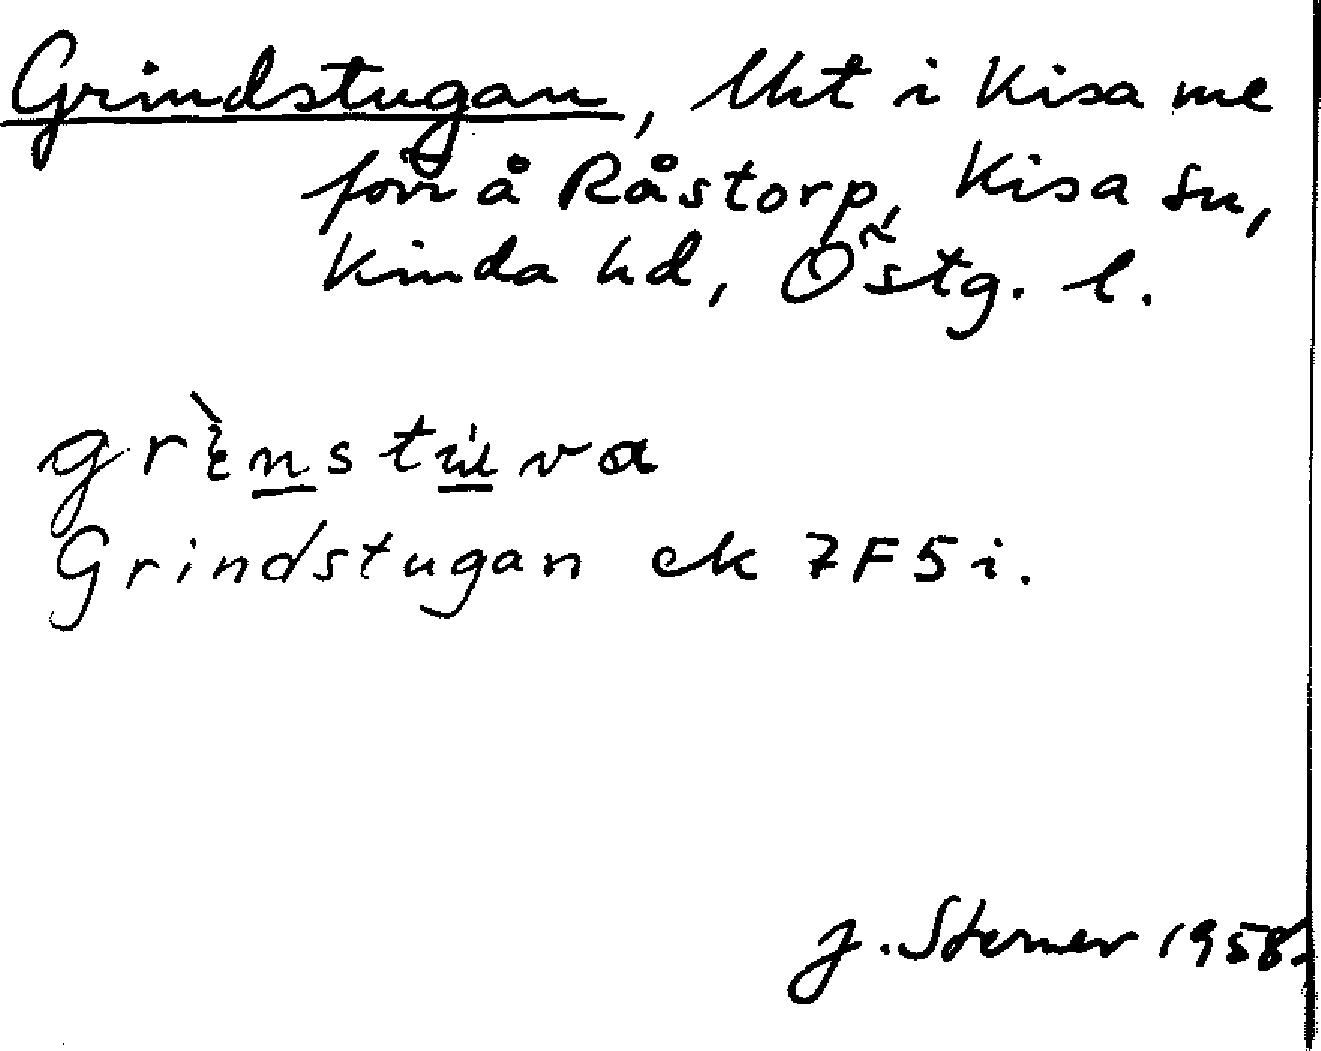 Grindstugan, lht i Kisa me
förr å Råstorp, Kisa sn,
Kinda hd, Östg. l.
Grindstugan ek 7F5i.
J. Sterner 1958.